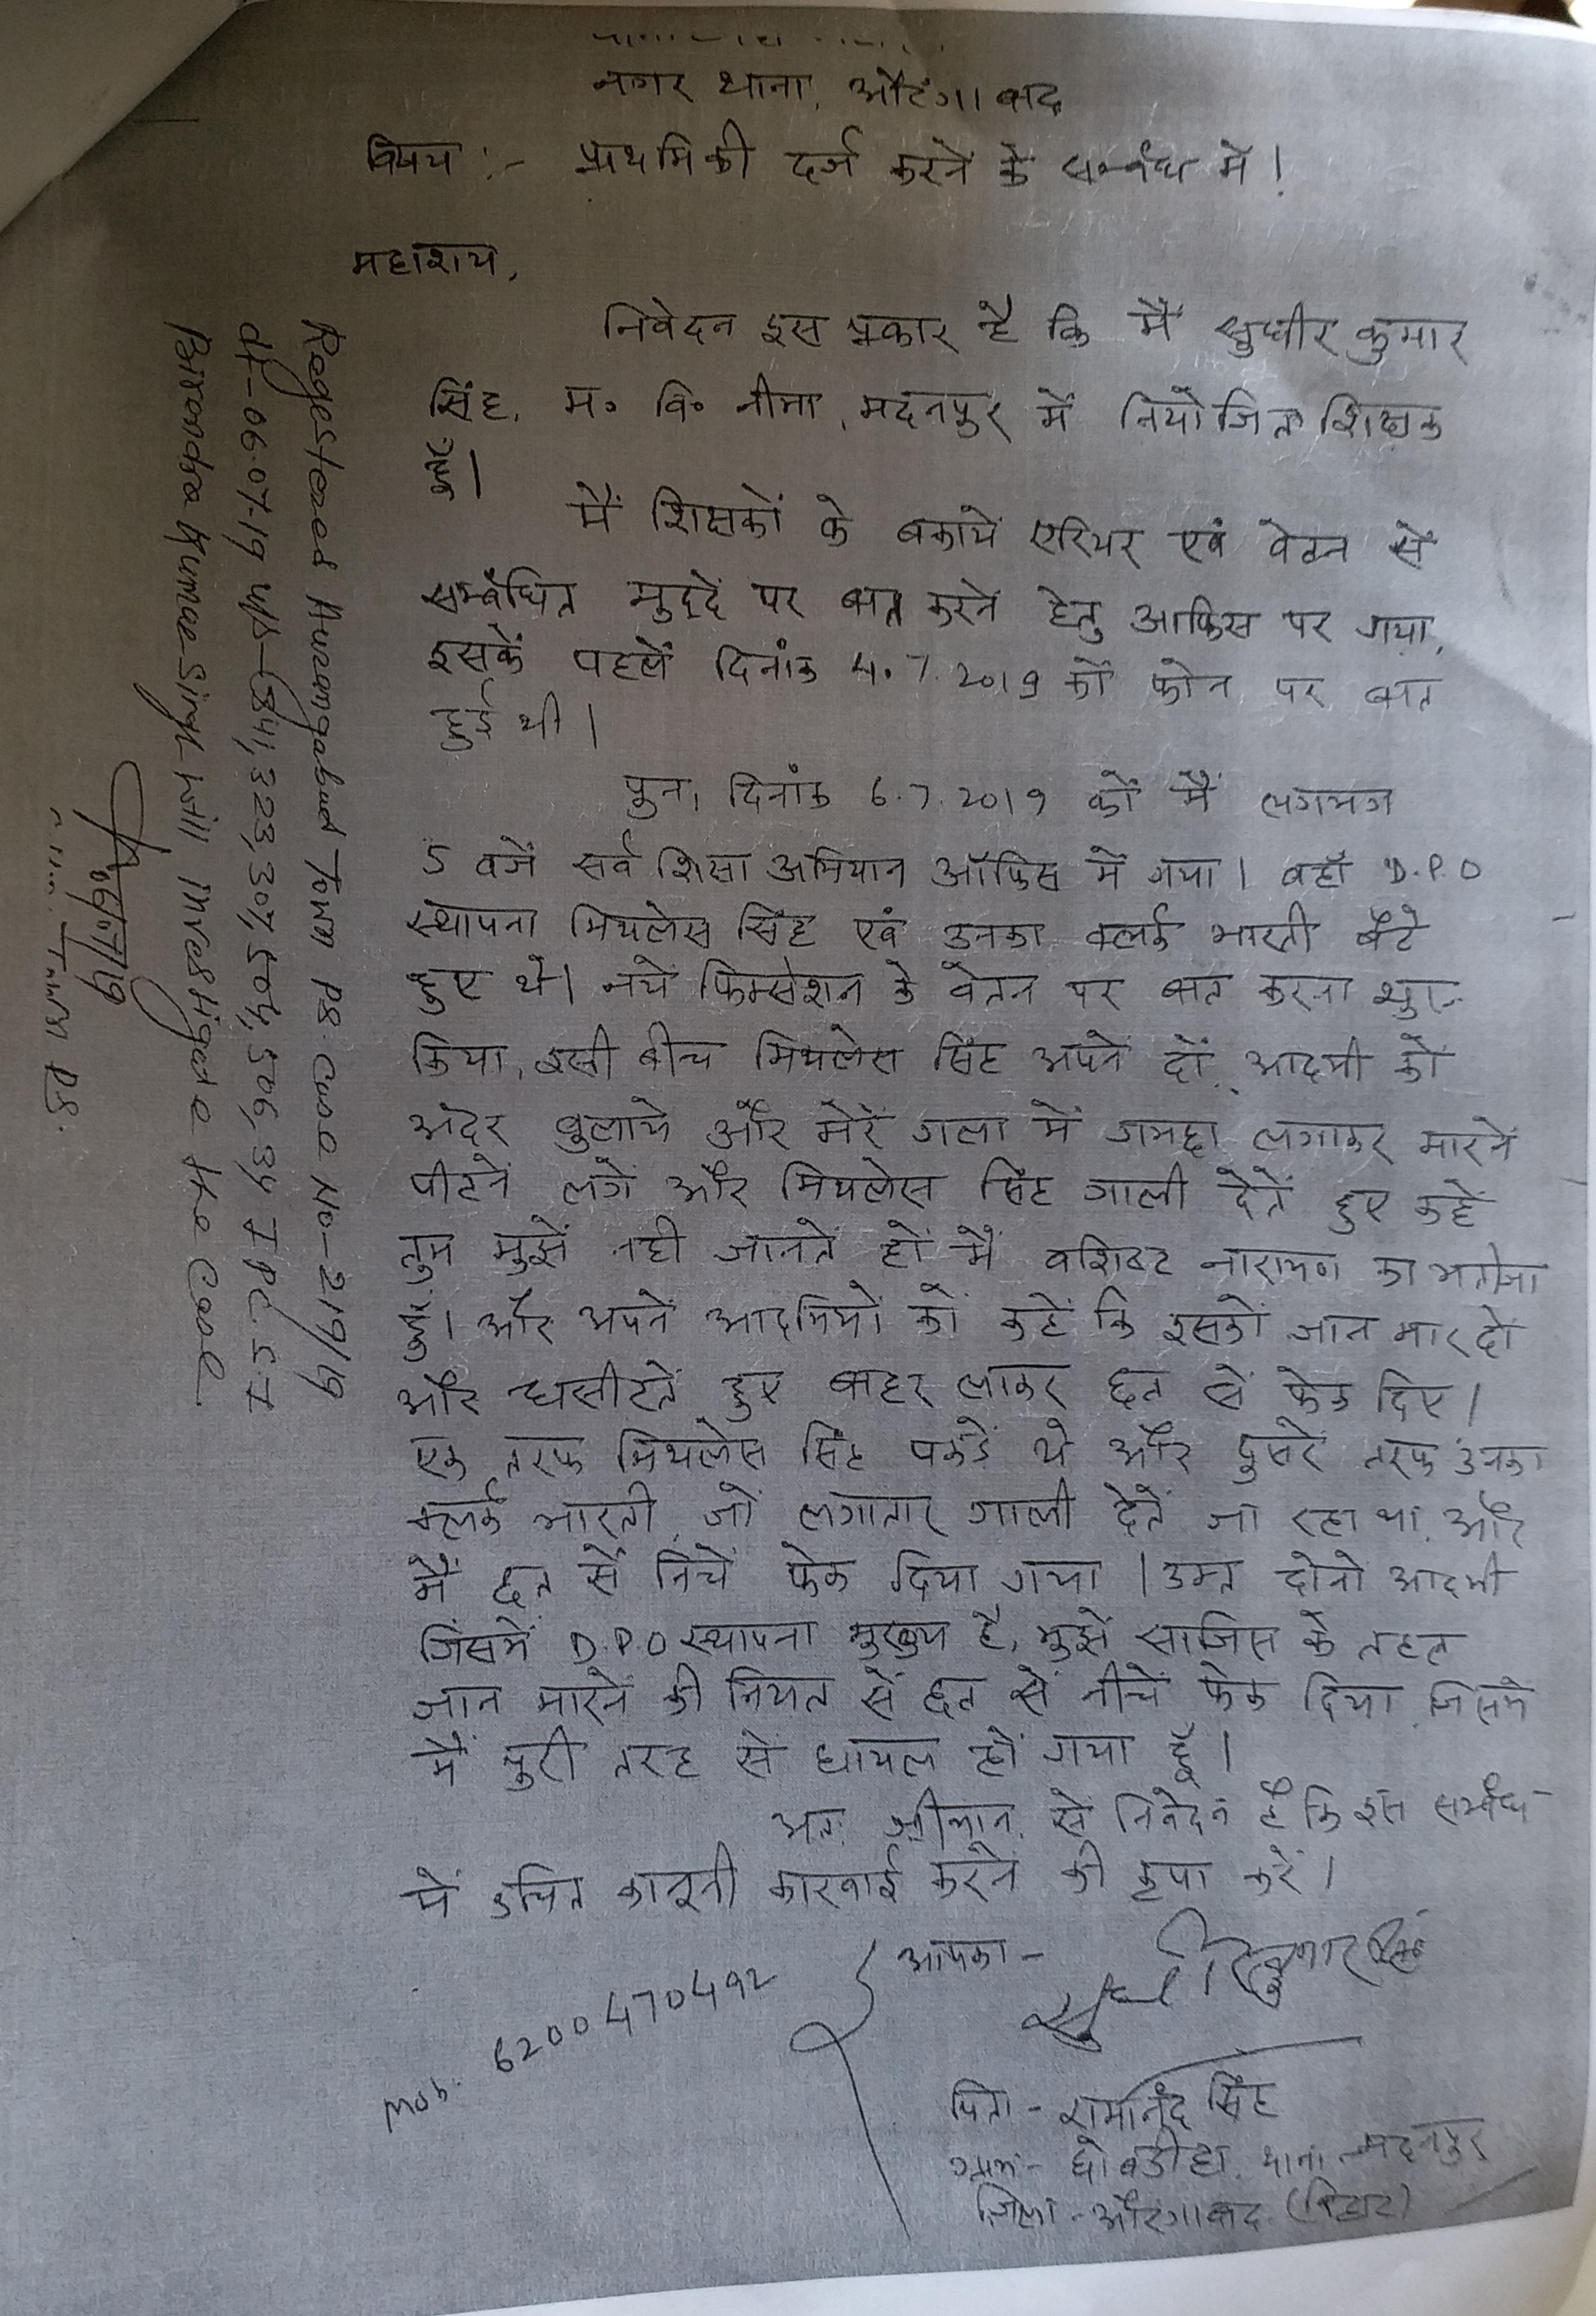 नगर थाना, औरंगाबाद
विषय :- प्राथमिकी दर्ज करने के सम्बंध में।
महाशय,
निवेदन इस प्रकार है कि मैं सुधीर कुमार
सिंह, म० वि० नीमा, मदनपुर में नियोजित शिक्षक
हूँ।
मैं शिक्षकों के बकाये एरियर एवं वेतन से
सम्बंधित मुद्दे पर बात करने हेतु आफिस पर गया,
इसके पहलें दिनांक 4.7.2019 कों फोन पर बात
हुई थी।
पुन, दिनांक 6.7.2019 कों मैं लगभग
5 बजें सर्व शिक्षा अभियान ऑफिस में गया। वहाँ D.P.O
स्थापना मिथलेस सिंह एवं उनका क्लर्क भारती बैठे
हुए थे। नये फिक्सेशन के वेतन पर बात करना शुरू
किया, इसी बीच मिथलेस सिंह अपने दों आदमी कों
अंदर बुलाये और मेरें गला में गमछा लगाकर मारनें
पीटनें लगें और मिथलेस सिंह गाली देतें हुए कहें
तुम मुझें नही जानतें हों मैं वशिष्ट नारायण का भतीजा
हूँ। और अपनें आदमियों कों कहें कि इसकों जान मार दों
और घसीटतें हुए बाहर लाकर छत सें फेक दिए।
एक तरफ मिथलेस सिंह पकडें थे और दुसरे तरफ उनका
क्लर्क भारती, जों लगातार गाली देतें जा रहा था, और
मैं छत सें निचें फेक दिया गया। उक्त दोनो आदमी
जिसमें D.P.O स्थापना मुख्य है, मुझें साजिस के तहत
जान मारनें की नियत सें छत सें नीचें फेक दिया, जिसमें
मैं पुरी तरह सें घायल हों गया हूँ।
अत: श्रीमान से निवेदन है कि इस सम्बंध
में उचित कानूनी कारवाई करनें की कृपा करें।
आपका -
सुधीर कुमार सिंह
Mob. 6200470492
पिता - रामानंद सिंह
ग्राम - घोबडीहा, थाना - मदनपुर
जिला - औरंगाबाद (बिहार)
Regestered Aurangabad Town PS. Case No - 219/19
dt - 06.07.19 u/s - 341, 323, 307, 504, 506, 34 IPC. S.I
Birendra Kumar Singh will investigate the case.
06/07/19
Town PS.